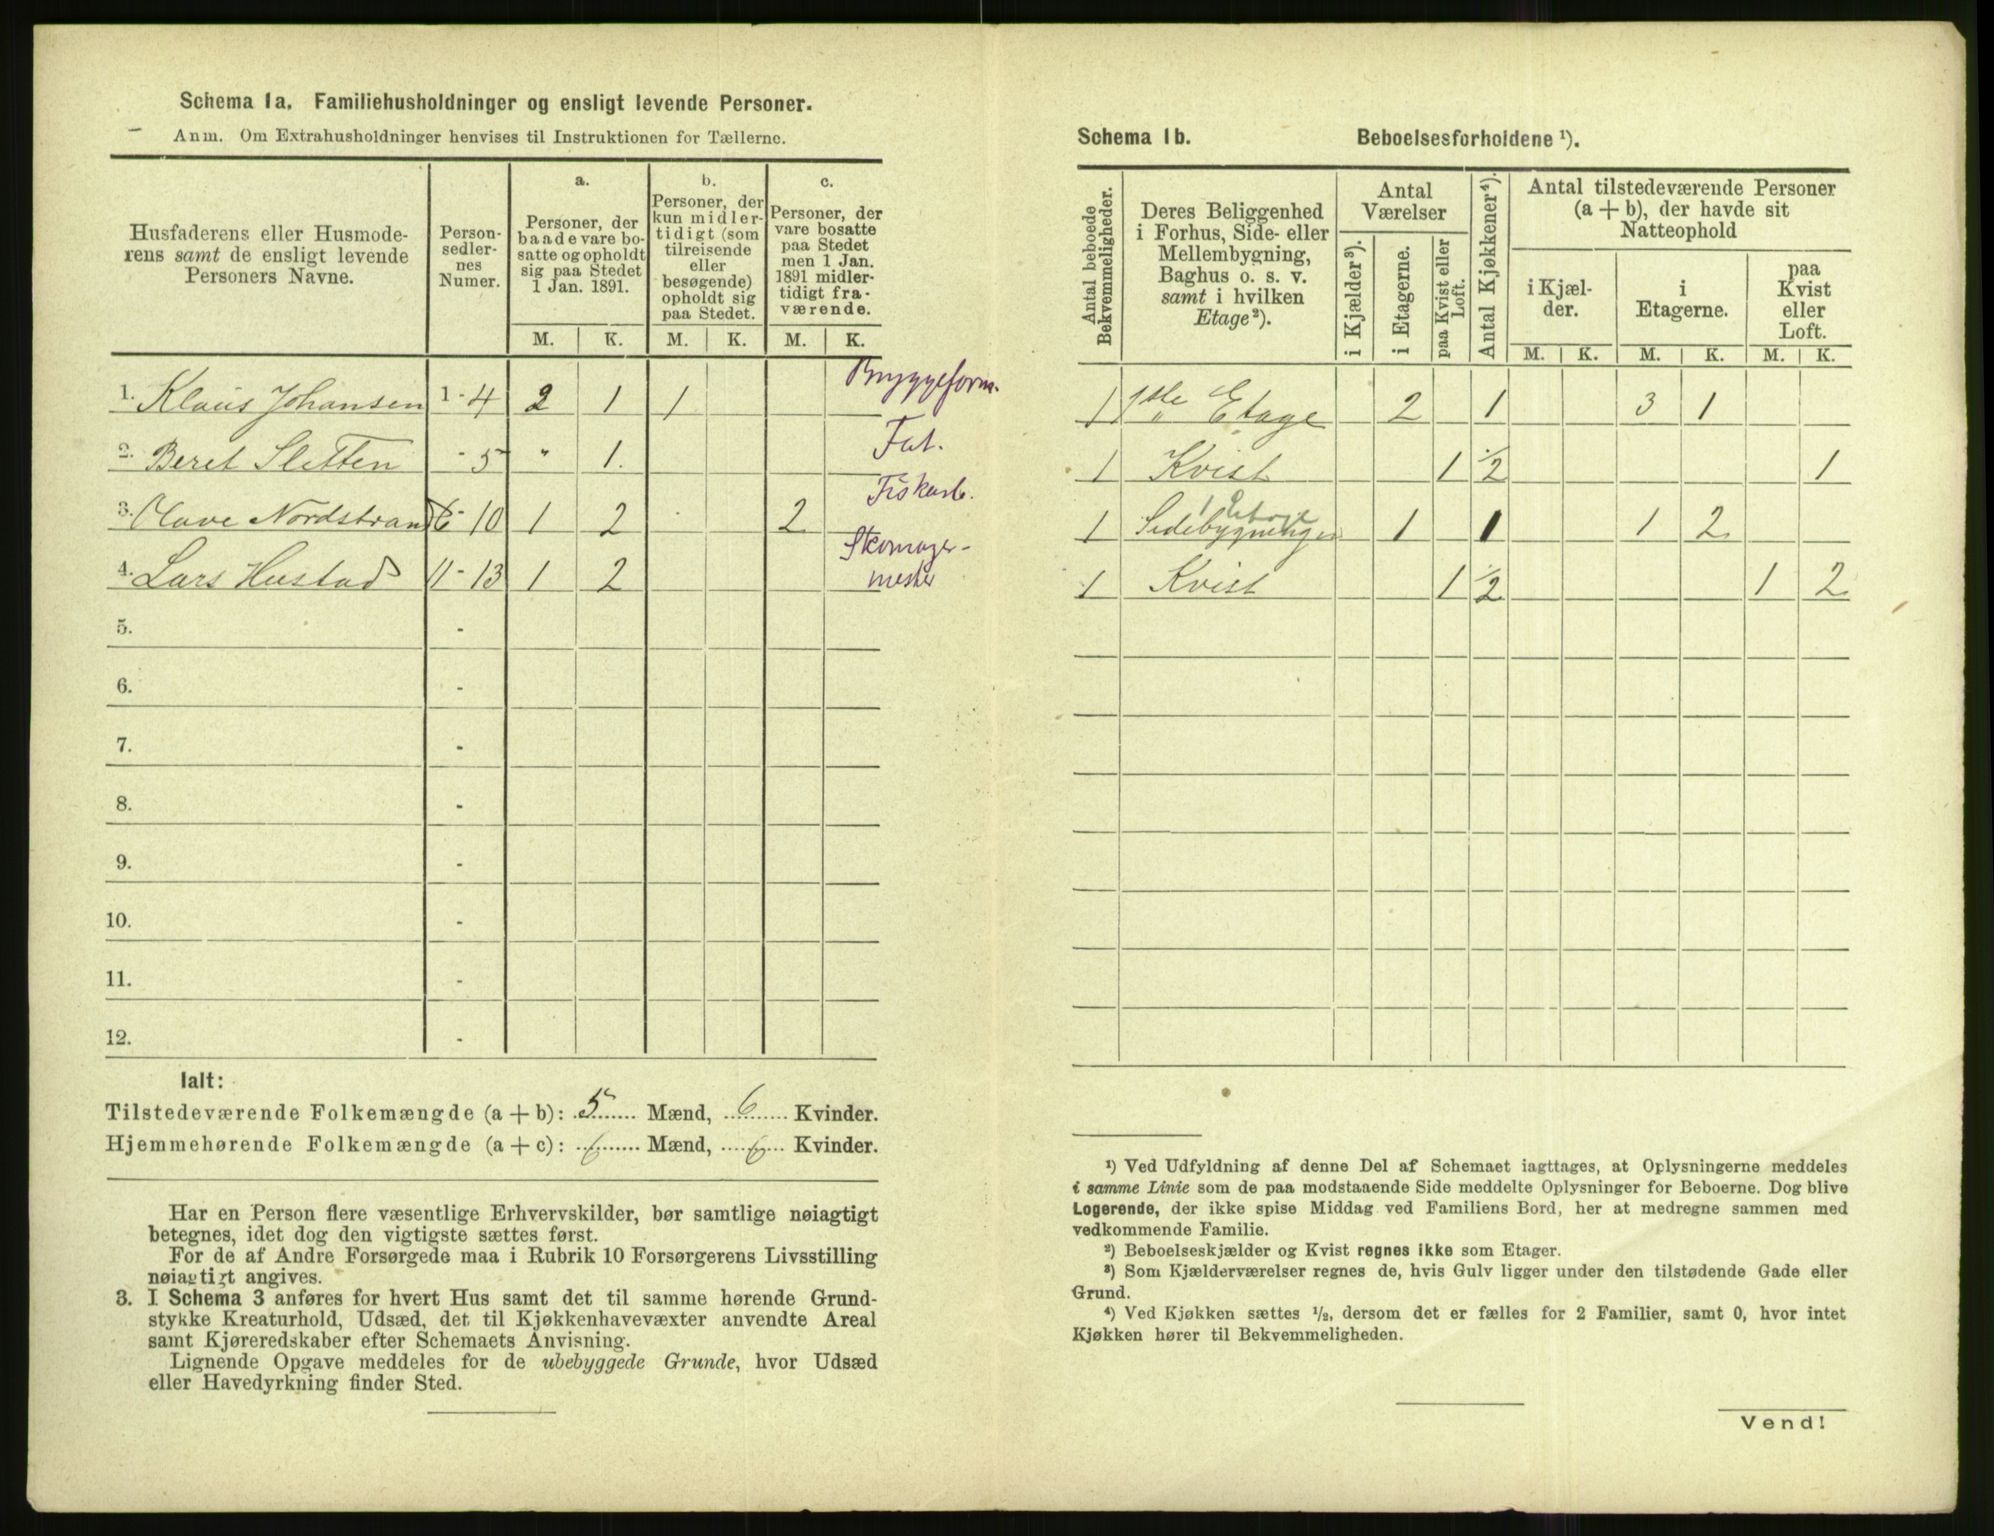 Schema 1a. Familiehusholdninger og ensligt levende Personer.
Anm. Om Extrahusholdninger henvises til Instruktionen for Tællerne.
Husfaderens eller Husmoderens samt de ensligt levende Personers Navne.
Personsedlernes Numer.
a. Personer, der baade vare bosatte og opholdt sig paa Stedet 1 Jan. 1891.
b. Personer, der kun midlertidigt (som tilreisende eller besøgende) opholdt sig paa Stedet.
c. Personer, der vare bosatte paa Stedet men 1 Jan. 1891 midlertidigt fraværende.
M. K. M. K. M. K.
1. Klaus Johansen 1-4 2 1 1 Bryggeform.
2. Beret Sletten -5 " 1. Fat.
3. Olave Nordstrand 6-10 1 2 2 Fiskarb.
4. Lars Hustad 11-13 1 2 Skomagermester
5. -
6. -
7. -
8. -
9. -
10. -
11. -
12. -
Ialt:
Tilstedeværende Folkemængde (a + b): 5 Mænd, 6 Kvinder.
Hjemmehørende Folkemængde (a + c): 6 Mænd, 6 Kvinder.
Har en Person flere væsentlige Erhvervskilder, bør samtlige nøiagtigt
betegnes, idet dog den vigtigste sættes først.
For de af Andre Forsørgede maa i Rubrik 10 Forsørgerens Livsstilling
nøiagtigt angives.
3. I Schema 3 anføres for hvert Hus samt det til samme hørende Grund-
stykke Kreaturhold, Udsæd, det til Kjøkkenhavevæxter anvendte Areal
samt Kjøreredskaber efter Schemaets Anvisning.
Lignende Opgave meddeles for de ubebyggede Grunde, hvor Udsæd
eller Havedyrkning finder Sted.
Schema 1b. Beboelsesforholdene ¹).
Antal beboede Bekvemmeligheder.
Deres Beliggenhed i Forhus, Side- eller Mellembygning, Baghus o. s. v. samt i hvilken Etage²).
Antal Værelser
i Kjælder³).
i Etagerne.
paa Kvist eller Loft.
Antal Kjøkkener⁴).
Antal tilstedeværende Personer (a + b), der havde sit Natteophold
i Kjælder.
i Etagerne.
paa Kvist eller Loft.
M. K. M. K. M. K.
1 1ste Etage 2 1 3 1
1 Kvist 1 1/2 1
1 Etage
1 Sidebygningen 1 1 1 2
1 Kvist 1 1/2 1 2
¹) Ved Udfyldning af denne Del af Schemaet iagttages, at Oplysningerne meddeles
i samme Linie som de paa modstaaende Side meddelte Oplysninger for Beboerne. Dog blive
Logerende, der ikke spise Middag ved Familiens Bord, her at medregne sammen med
vedkommende Familie.
²) Beboelseskjælder og Kvist regnes ikke som Etager.
³) Som Kjælderværelser regnes de, hvis Gulv ligger under den tilstødende Gade eller
Grund.
⁴) Ved Kjøkken sættes ¹/₂, dersom det er fælles for 2 Familier, samt 0, hvor intet
Kjøkken hører til Bekvemmeligheden.
Vend!